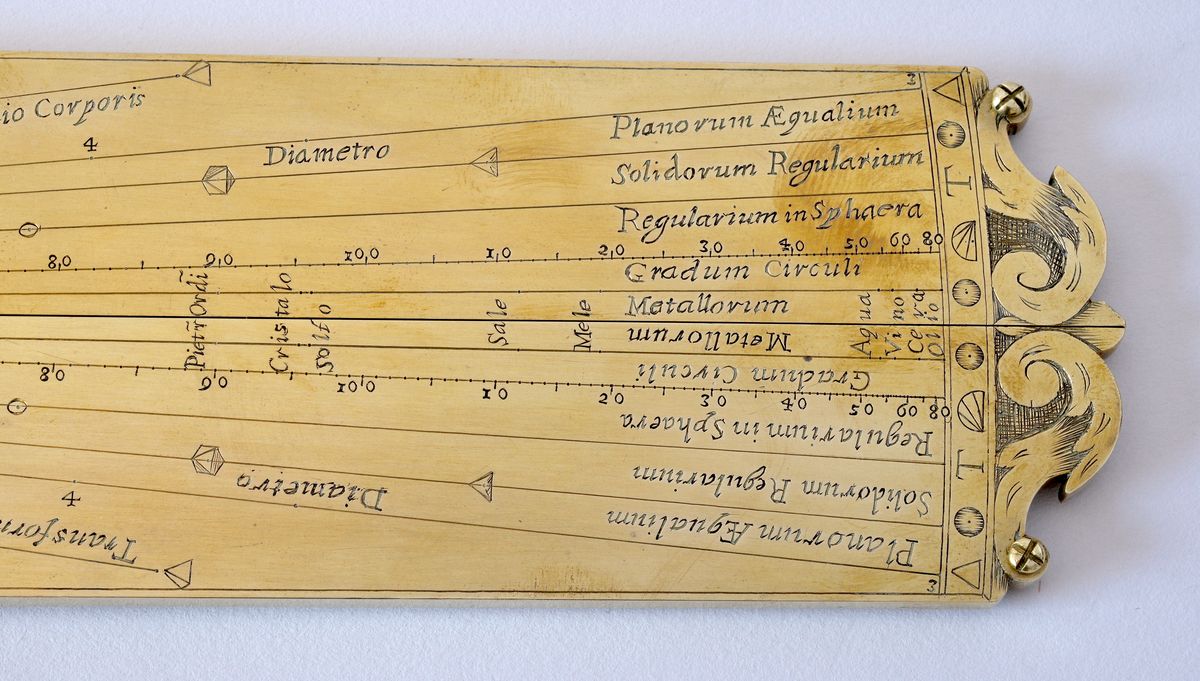 io Corporis
4
Diametro
3
Planorum Æqualium
Solidorum Regularium
Regularium in Sphaera
8,0 9,0 10,0 1,0 2,0 3,0 4,0 5,0 60 80
Gradum Circuli
Metallorum
Pietr̃ Ordĩ
Cristalo
Solfo
Sale
Mele
Aqua
Vino
Cera
Olio
Metallorum
Gradum Circuli
8,0 9,0 10,0 1,0 2,0 3,0 4,0 5,0 60 80
Regularium in Sphaera
Solidorum Regularium
Diametro
Planorum Æqualium
4
Transform
3
T
T